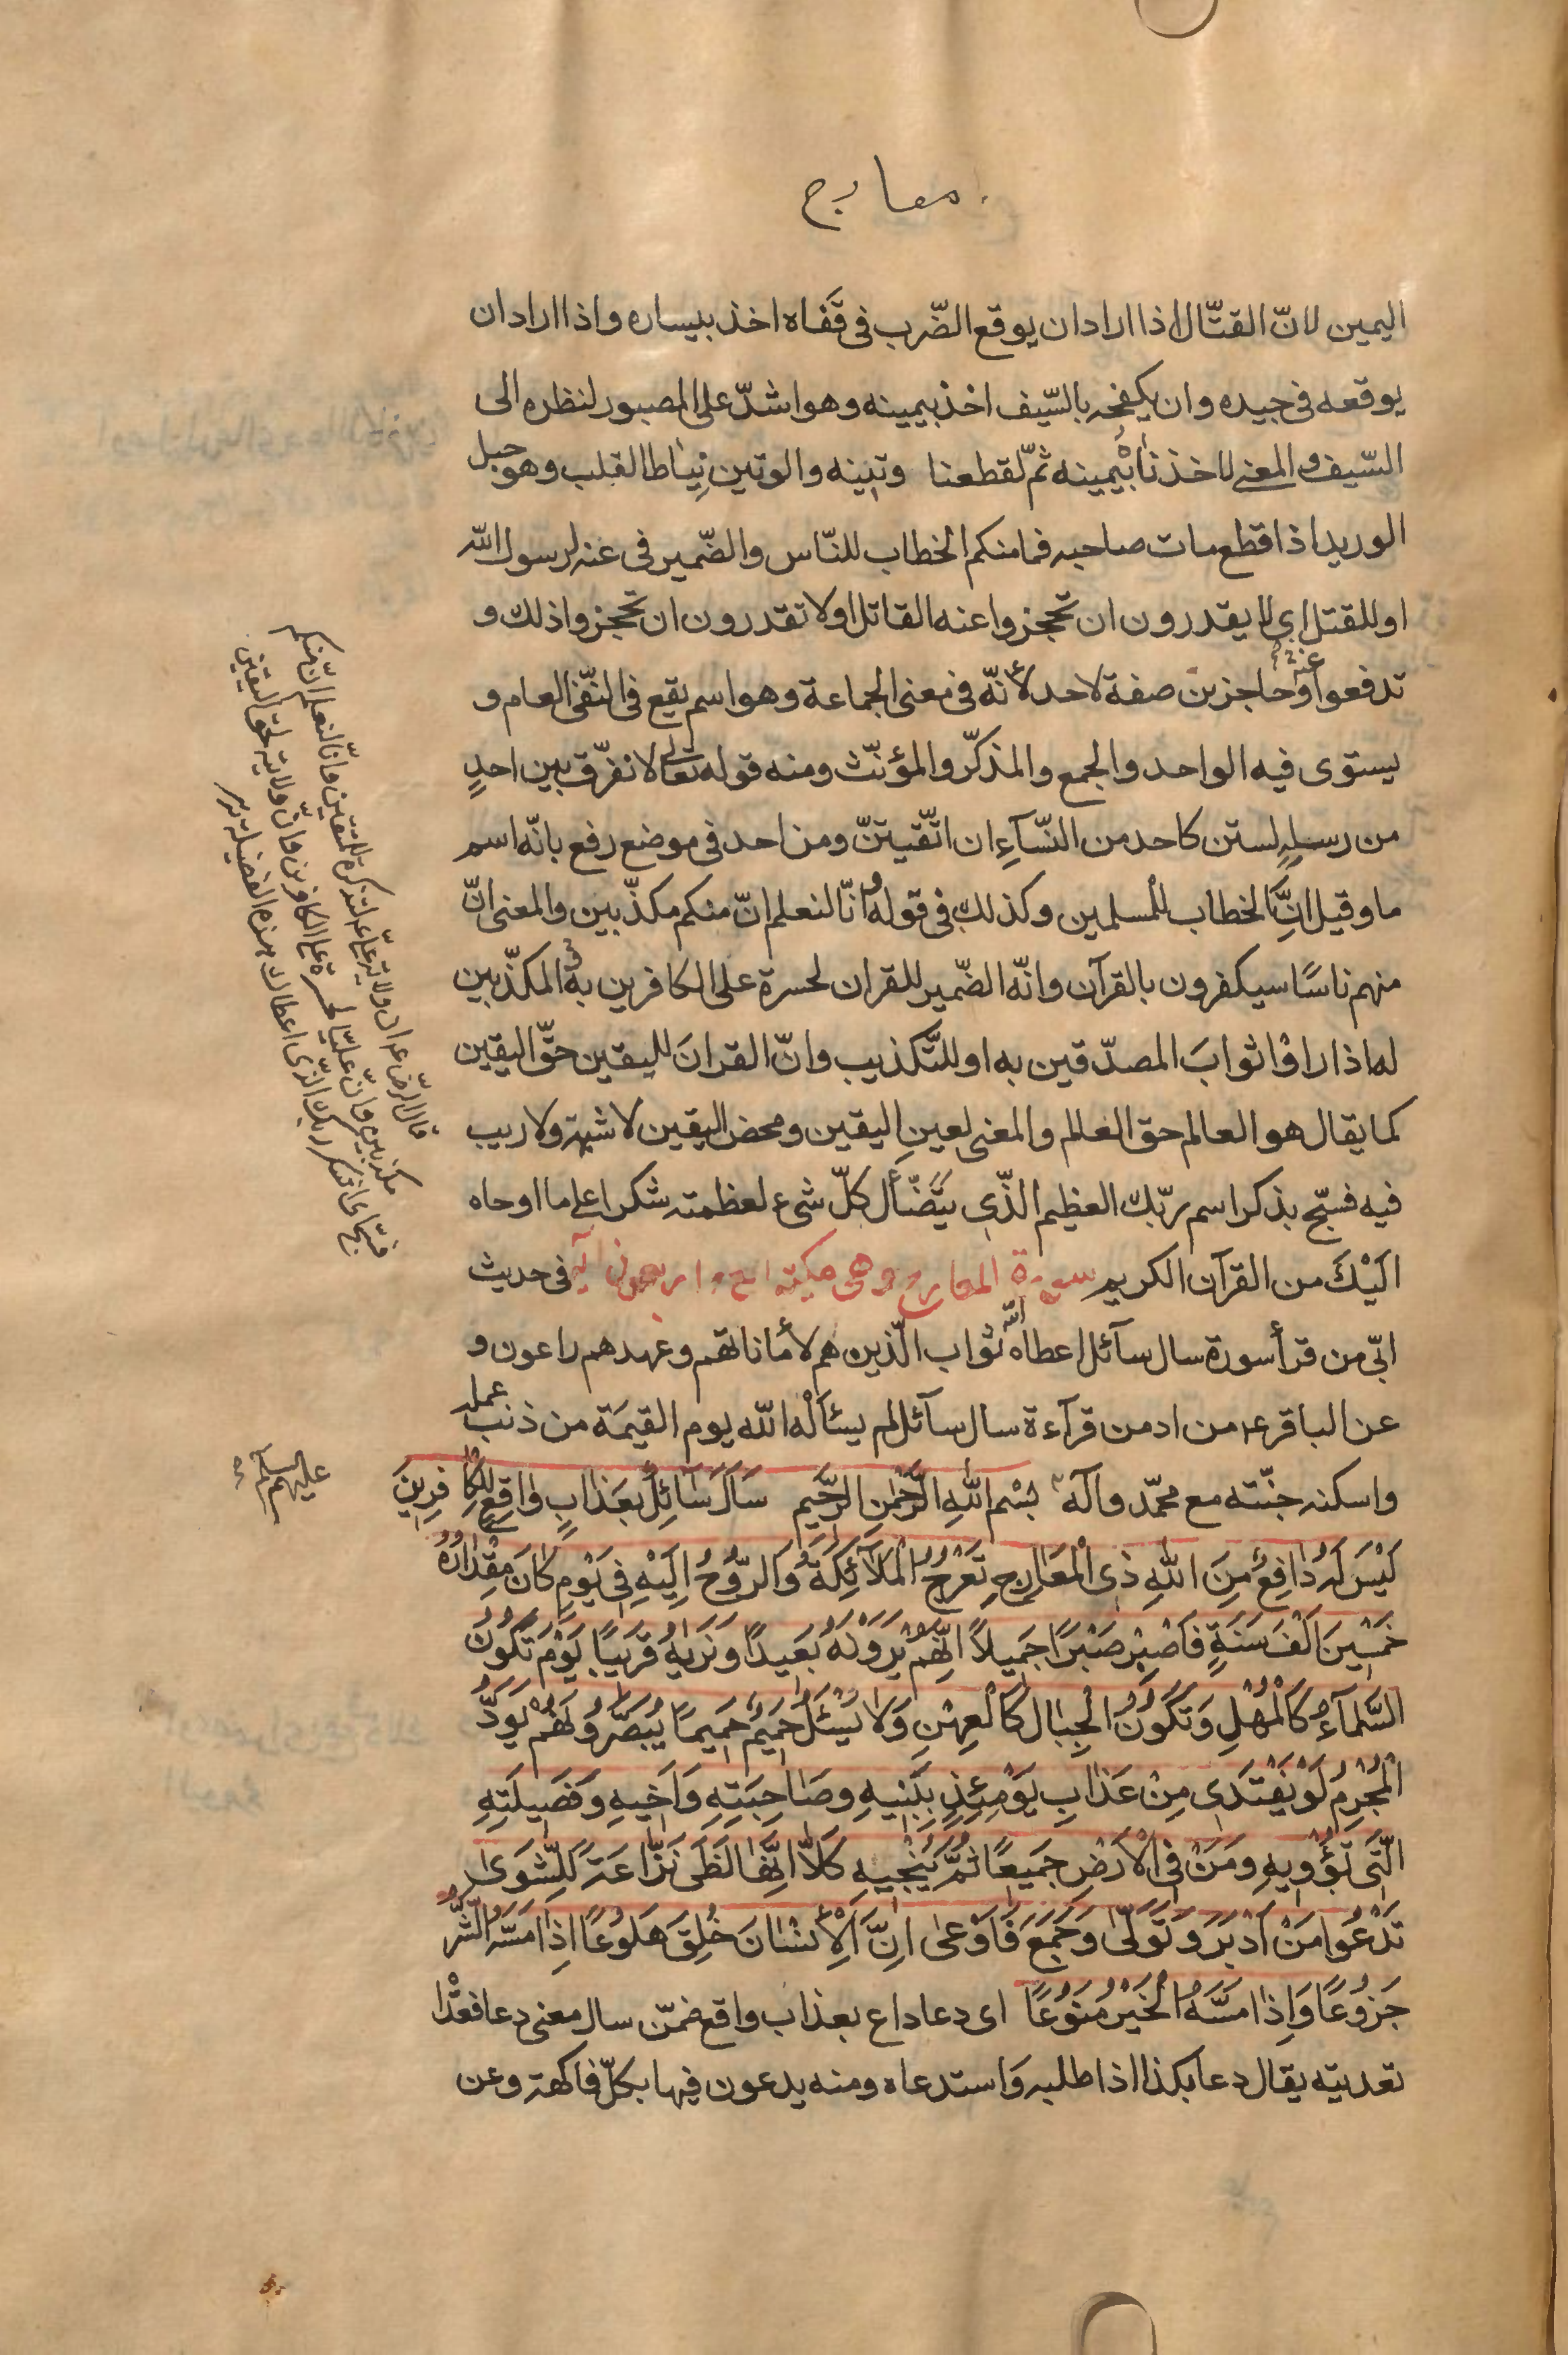 معارج
اليمين لانّ القتّال اذا اراد ان يوقع الضّرب فى قَفاه اخذ بيساره واذا اراد ان
يوقعه فى جيده وان يكفحه بالسّيف اخذ بيمينه وهو اشدّ على المصبور لنظره الى
السّيف والمعنى لاخذنا بيمينه ثمّ لقطعنا وتينه والوتين نِياط القلب وهو حبل
الوريد اذا قطع مات صاحبه فما منكم الخطاب للنّاس والضّمير فى عنه لرسول اللّه
او للقتل اى لا يقدرون ان تحجزوا عنه القاتل او لا تقدرون ان تحجزوا ذلك و
تدفعوا عنه وحاجزين صفة لاحد لأنّه فى معنى الجماعة وهو اسم يقع فى النّفى العام و
يستوى فيه الواحد والجمع والمذكّر والمؤنّث ومنه قوله تعالى لا نفرّق بين احدٍ
من رسله لستن كاحد من النّسآءِ ان اتّقيتنّ ومن احد فى موضع رفع بانّه اسم
ما وقيل انّ الخطاب للمسلمين وكذلك فى قوله وانّا لنعلم انّ منكم مكذّبين والمعنى انّ
منهم ناسًا سيكفرون بالقرآن وانّه الضّمير للقران لحسرة على الكافرين به المكذّبين
له اذا راوْا ثوابَ المصدّقين به او للتّكذيب وانّ القرانَ لليقين حقّ اليقين
كما يقال هو العالم حق العالم والمعنى لعينِ اليقين ومحض اليقين لا شبهة ولا ريب
فيه فسبّح بذكر اسم ربّك العظيم الّذى يتضّأل كلّ شىء لعظمته شكرا على ما اوحاه
اليْكَ من القرآن الكريم سورة المعارج وهى مكيّة اربع واربعون آية فى حديث
ابىّ من قرأ سورة سال سآئل اعطاه اللّه ثواب الّذين هم لأماناتهم وعهدهم راعون و
عن الباقر ع من ادمن قرآءة سال سآئل لم يسئالْه اللّه يوم القيمَة من ذنب عمله
واسكنه جنّته مع محمّد وآله بِسْمِ اللّهِ الرَّحْمٰنِ الرَّحيمِ سَاَلَ سَائِلٌ بِعَذابٍ واقِعٍ لِلْكافِرينَ
لَيْسَ لَهُ دافِعٌ مِنَ اللّهِ ذِى الْمَعارِجِ تَعْرُجُ الْمَلآئِكَةُ وَالرُّوحُ اِلَيْهِ فى يَوْمٍ كانَ مِقْدارُهُ
خَمْسينَ اَلْفَ سَنَةٍ فَاصْبِرْ صَبْرًا جَميلًا اِنَّهُمْ يَرَوْنَهُ بَعيدًا وَنَريهُ قَريبًا يَوْمَ تَكُونُ
السَّمآءُ كَالْمُهْلِ وَتَكُونُ الْجِبالُ كَالْعِهْنِ وَلا يَسْئَلُ حَميمٌ حَميمًا يُبَصَّرُونَهُمْ يَوَدُّ
الْمُجْرِمُ لَوْ يَفْتَدى مِنْ عَذابِ يَوْمِئِذٍ بِبَنيهِ وَصاحِبَتِهِ وَاَخيهِ وَفَصيلَتِهِ
الَّتى تُؤْويهِ وَمَنْ فِى الْاَرْضِ جَميعًا ثُمَّ يُنْجيهِ كَلّا اِنَّها لَظى نَزّاعَةً لِلشَّوى
تَدْعُوا مَنْ اَدْبَرَ وَتَوَلّى وَجَمَعَ فَاَوْعى اِنَّ الْاِنْسانَ خُلِقَ هَلُوعًا اِذا مَسَّهُ الشَّرُّ
جَزُوعًا وَاِذا مَسَّهُ الْخَيْرُ مَنُوعًا اى دعا داع بعذاب واقع ضمّن سال معنى دعا فعدّا
تعديته يقال دعا بكذا اذا طلبه واستدعاه ومنه يدعون فيها بكلّ فاكهة وعن
قال الرّضا ع ان ولاية علىّ لتذكرة للمتّقين وانّا لنعلم انّ منكم
مكذبين وانّ عليّا لحسرة على الكافرين وانّ ولايته لحق اليقين
فسبّح اى اشكر ربك الّذى اعطاك بهذه الفضيلة
عليهم السلام